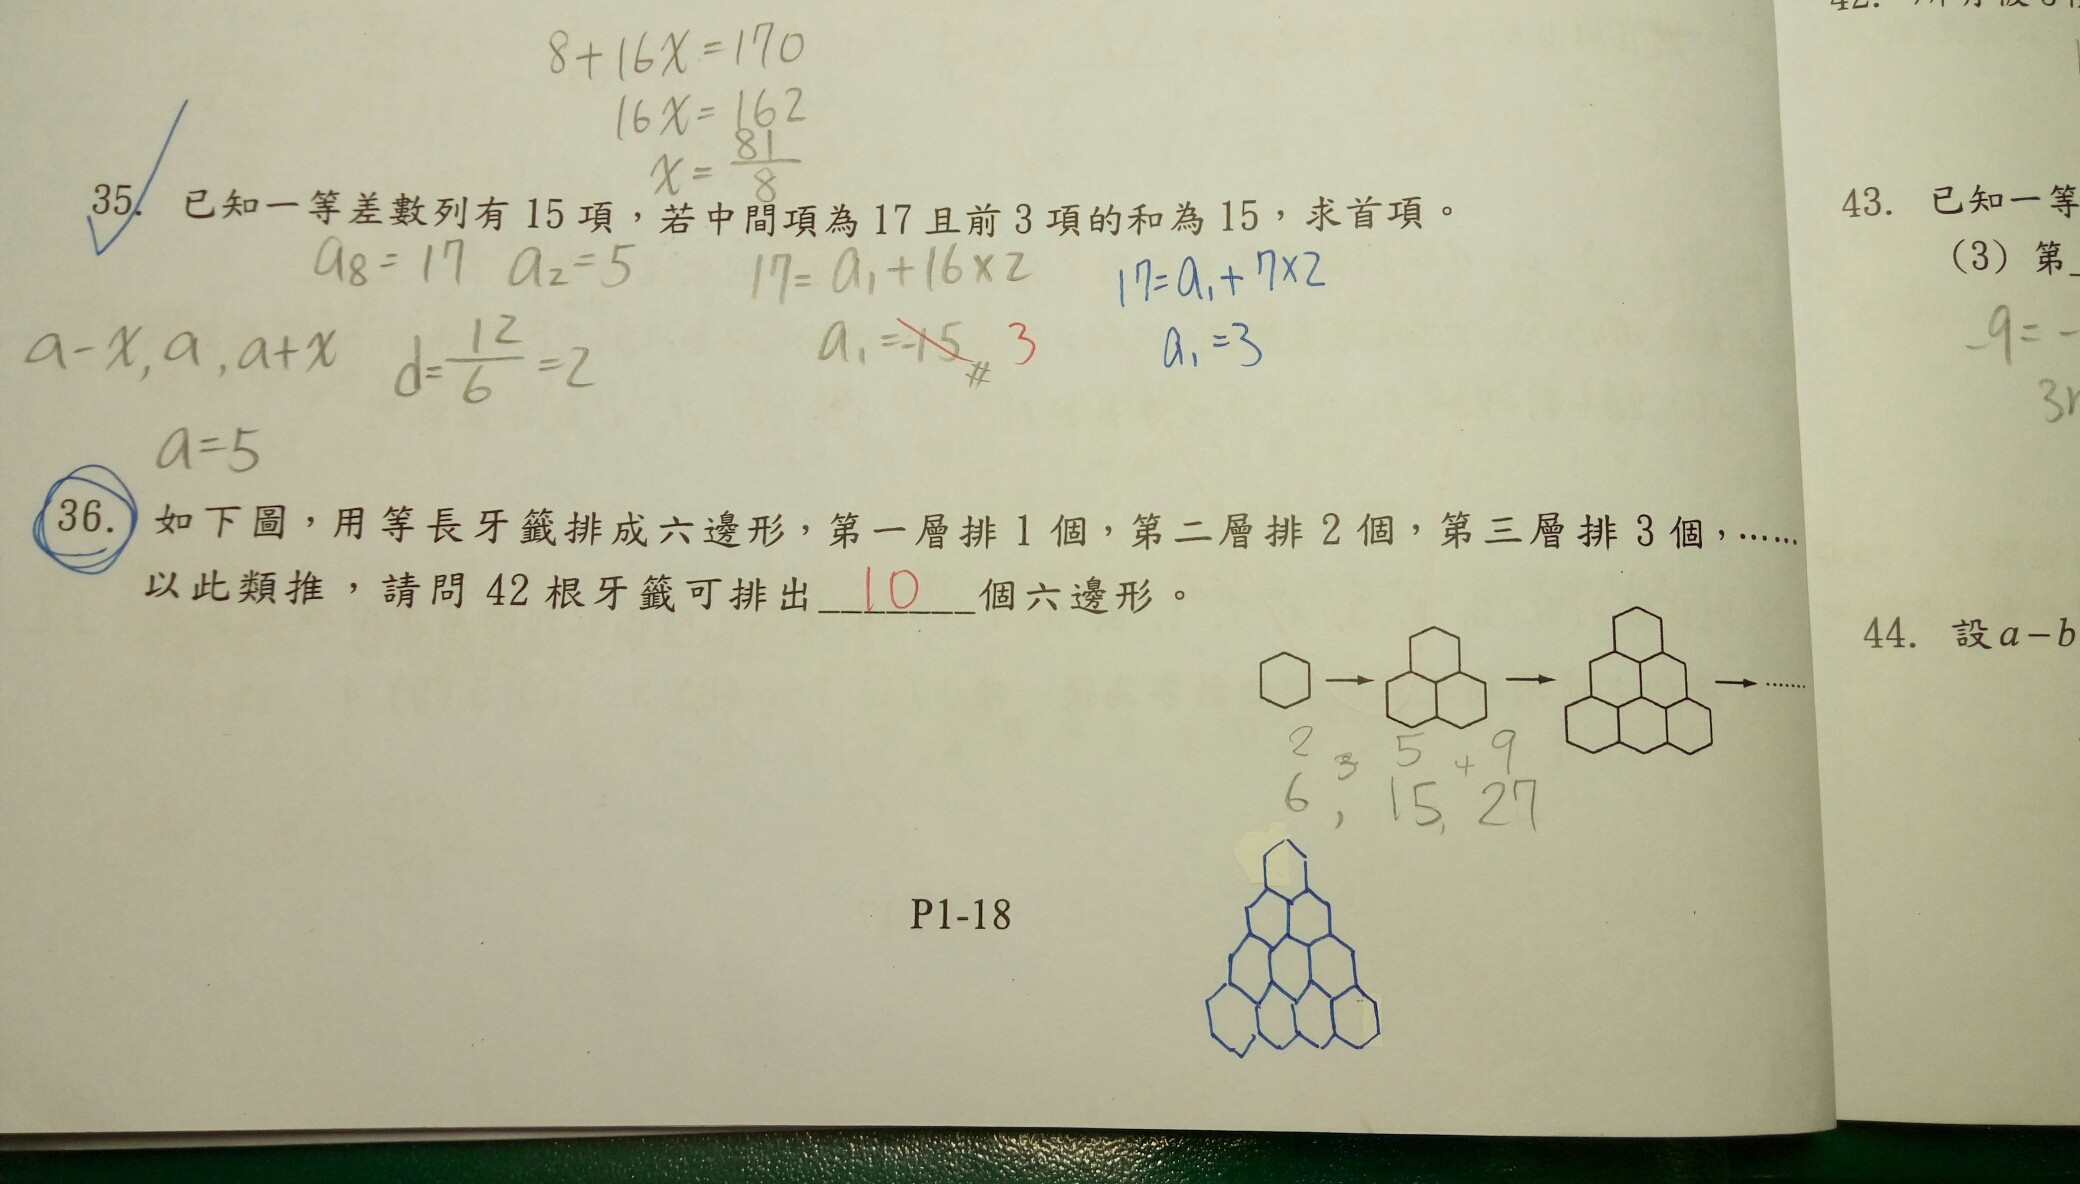 8+16x=170
16x=162
x=81/8
35. 已知一等差數列有 15 項，若中間項為 17 且前 3 項的和為 15，求首項。
a₈=17 a₂=5 17=a₁+16×2 17=a₁+7×2
a-x, a, a+x d=12/6=2 a₁=-15# 3 a₁=3
a=5
36. 如下圖，用等長牙籤排成六邊形，第一層排 1 個，第二層排 2 個，第三層排 3 個，……
以此類推，請問 42 根牙籤可排出 10 個六邊形。
2 3 5 + 9
6, 15, 27
P1-18
43. 已知一等
(3) 第
-9=-
44. 設 a－b